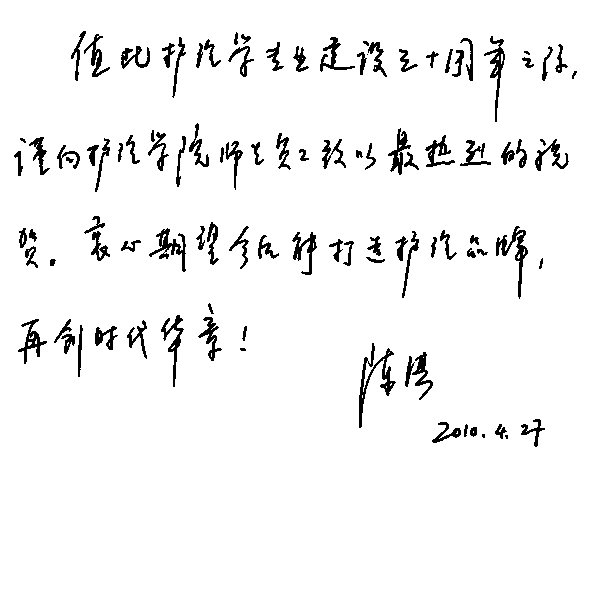 值此护理学专业建设三十周年之际,
谨向护理学院师生员工致以最热烈的祝
贺。衷心期望今后能打造护理品牌,
再创时代华章!
陈琪
2010.4.27